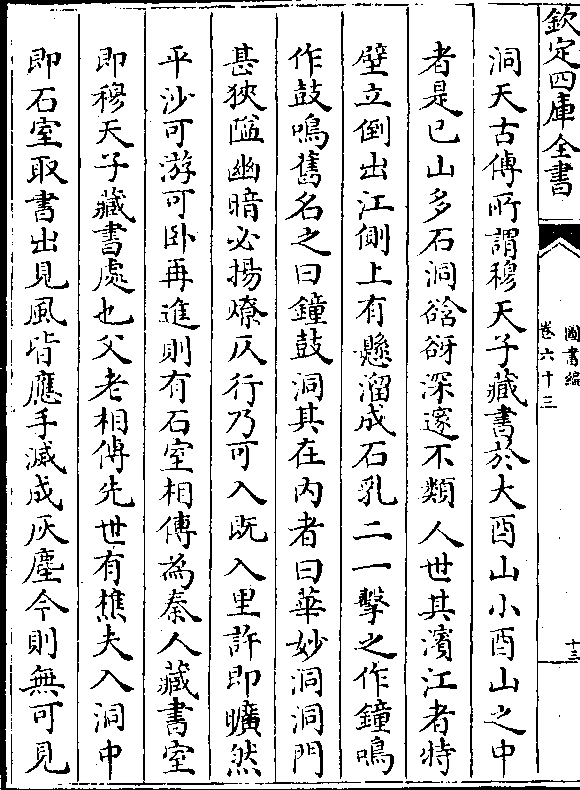 欽定四庫全書
圖書編
卷六十三
十三
洞天古傳所謂穆天子藏書於大酉山小酉山之中
者是已山多石洞谽谺深邃不類人世其濱江者特
壁立倒出江側上有懸溜成石乳二一擊之作鐘鳴
作鼓鳴舊名之曰鐘鼓洞其在內者曰華妙洞洞門
甚狹隘幽暗必揚燎仄行乃可入既入里許即曠然
平沙可游可卧再進則有石室相傳為秦人藏書室
即穆天子藏書處也父老相傳先世有樵夫入洞中
即石室取書出見風皆應手滅成灰塵今則無可見